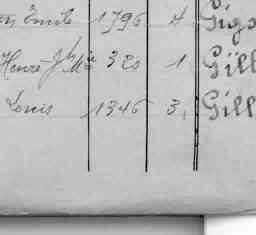 Emile 1796 4 Gigo
Henri-Jh Mie 320 1 Gill
Louis 1346 3 Gill